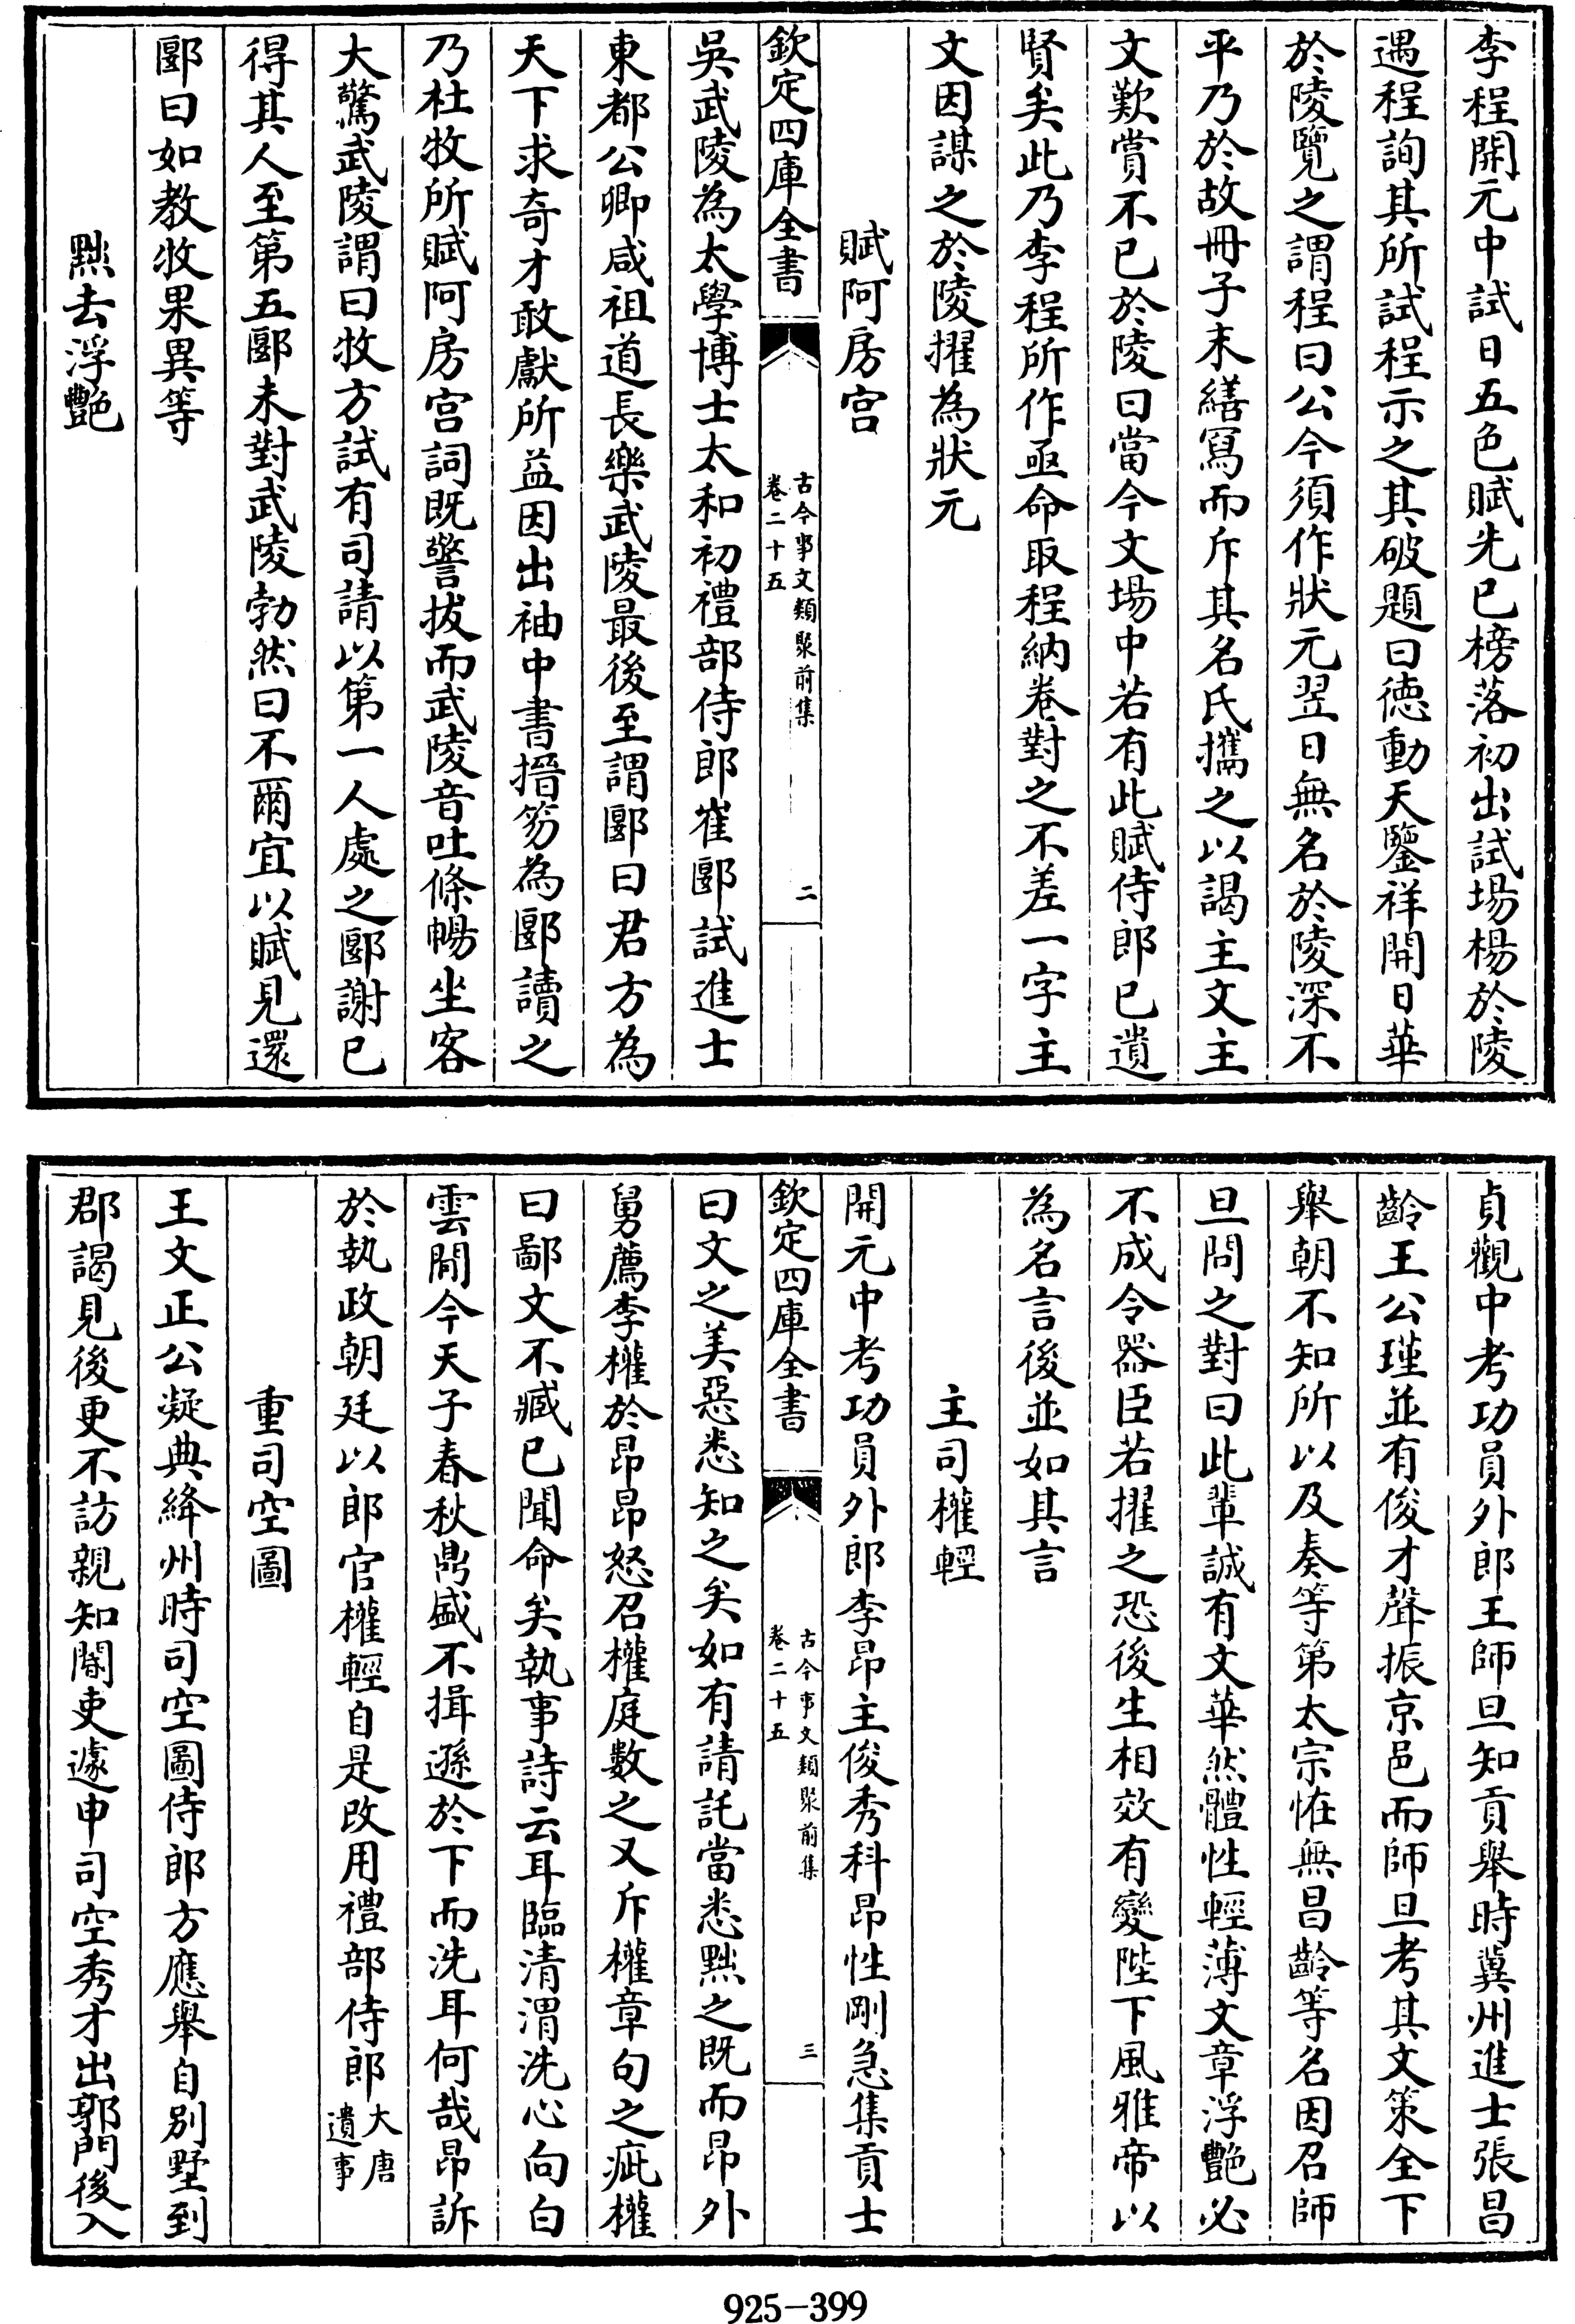 李程開元中試日五色賦先已榜落初出試場楊於陵
遇程詢其所試程示之其破題曰徳動天鑒祥開日華
於陵覽之謂程曰公今須作狀元翌日無名於陵深不
平乃於故冊子末繕寫而斥其名氏攜之以謁主文主
文歎賞不已於陵曰當今文場中若有此賦侍郎已遺
賢矣此乃李程所作亟命取程納卷對之不差一字主
文因謀之於陵擢為狀元
賦阿房宫
欽定四庫全書
古今事文類聚前集
卷二十五
二
吳武陵為太學博士太和初禮部侍郎崔郾試進士
東都公卿咸祖道長樂武陵最後至謂郾曰君方為
天下求奇才敢獻所益因出袖中書搢笏為郾讀之
乃杜牧所賦阿房宫詞既警拔而武陵音吐條暢坐客
大驚武陵謂曰牧方試有司請以第一人處之郾謝已
得其人至第五郾未對武陵勃然曰不爾宜以賦見還
郾曰如教牧果異等
黜去浮艷
貞觀中考功員外郎王師旦知貢舉時冀州進士張昌
齡王公瑾並有俊才聲振京邑而師旦考其文策全下
舉朝不知所以及奏等第太宗恠無昌齡等名因召師
旦問之對曰此輩誠有文華然體性輕薄文章浮艷必
不成令器臣若擢之恐後生相效有變陛下風雅帝以
為名言後並如其言
主司權輕
開元中考功員外郎李昂主俊秀科昂性剛急集貢士
欽定四庫全書
古今事文類聚前集
卷二十五
三
曰文之美惡悉知之矣如有請託當悉黜之既而昂外
舅薦李權於昂昂怒召權庭數之又斥權章句之疵權
曰鄙文不臧已聞命矣執事詩云耳臨清渭洗心向白
雲閒今天子春秋鼎盛不揖遜於下而洗耳何哉昂訴
於執政朝廷以郎官權輕自是改用禮部侍郎大唐
遺事
重司空圖
王文正公凝典絳州時司空圖侍郎方應舉自別墅到
郡謁見後更不訪親知閽吏遽申司空秀才出郭門後入
925-399